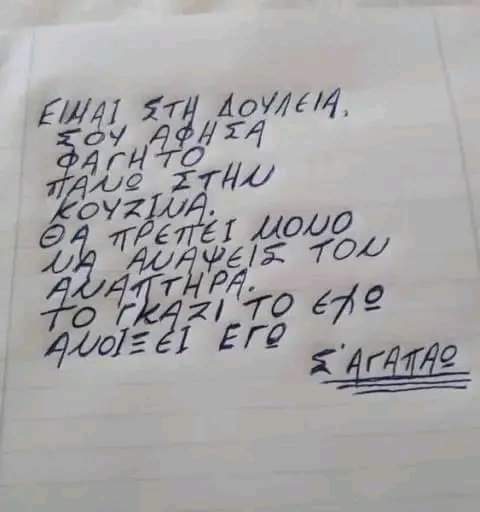 ΕΙΜΑΙ ΣΤΗ ΔΟΥΛΕΙΑ.
ΣΟΥ ΑΦΗΣΑ
ΦΑΓΗΤΟ
ΠΑΝΩ ΣΤΗΝ
ΚΟΥΖΙΝΑ.
ΘΑ ΠΡΕΠΕΙ ΜΟΝΟ
ΝΑ ΑΝΑΨΕΙΣ ΤΟΝ
ΑΝΑΠΤΗΡΑ.
ΤΟ ΓΚΑΖΙ ΤΟ ΕΧΩ
ΑΝΟΙΞΕΙ ΕΓΩ
Σ'ΑΓΑΠΑΩ